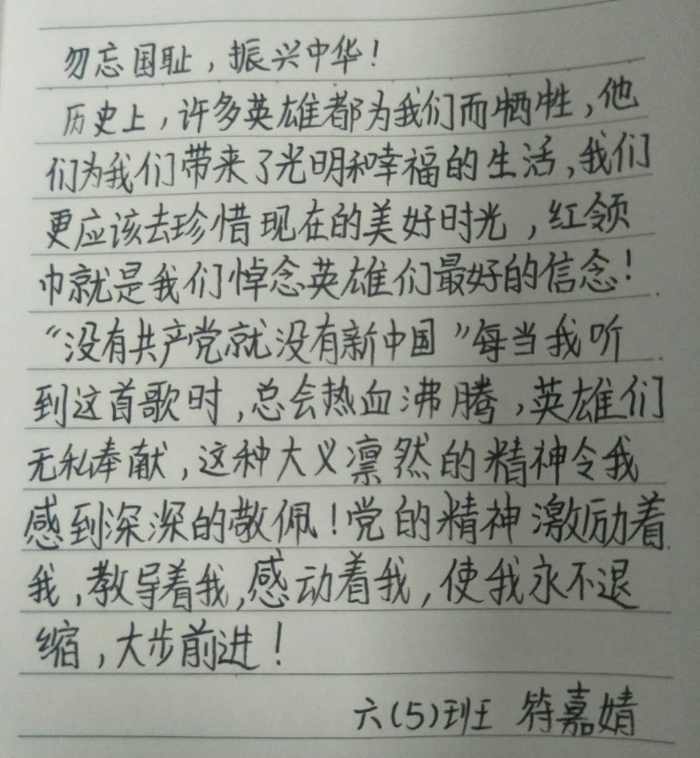 勿忘国耻，振兴中华！
历史上，许多英雄都为我们而牺牲，他
们为我们带来了光明和幸福的生活，我们
更应该去珍惜现在的美好时光，红领
巾就是我们悼念英雄们最好的信念！
“没有共产党就没有新中国”每当我听
到这首歌时，总会热血沸腾，英雄们
无私奉献，这种大义凛然的精神令我
感到深深的敬佩！党的精神激励着
我，教导着我，感动着我，使我永不退
缩，大步前进！
六(5)班 符嘉婧